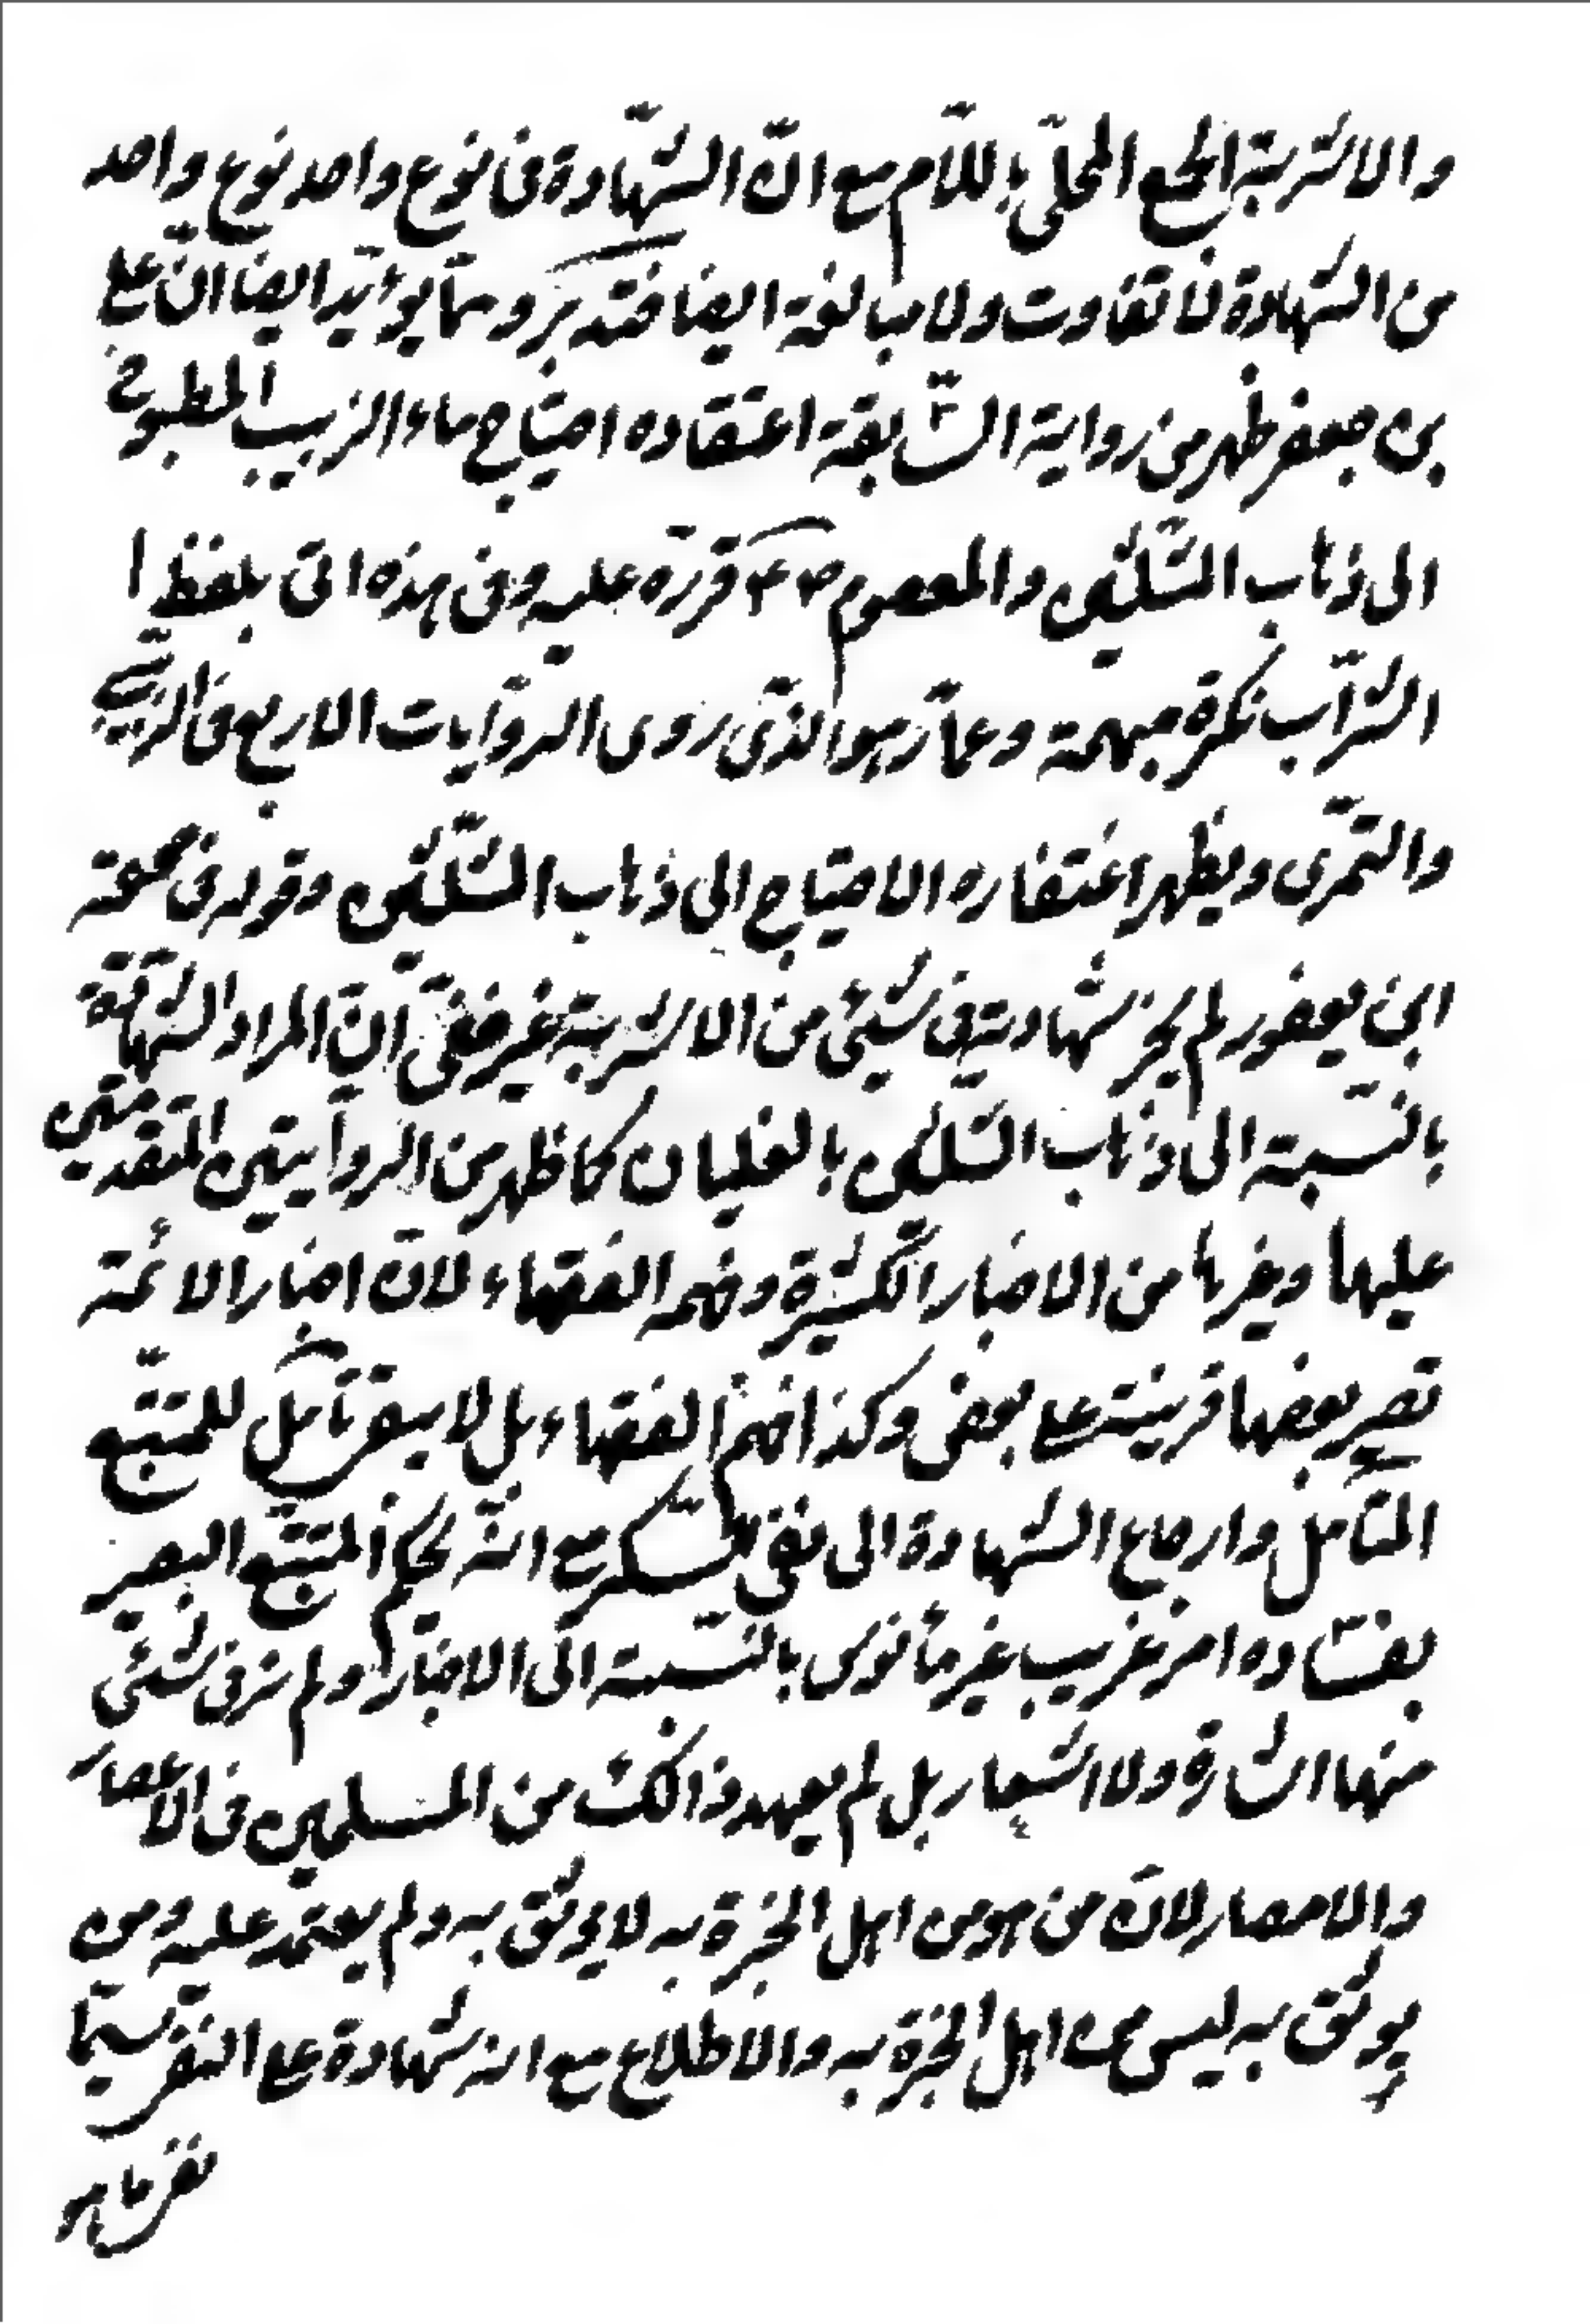 والاشربة الجمع المحلّى باللّام مع انّ الشّهادة فى نوع واحد نوع واحد
من الشهادة فلا تفاوت ولا مبالغة ايضا فتدبّر وممّا يؤيّد ايضا انّ على
بن جعفر ظهر من رواية السّابقة اعتقاده احتياج ماء الزبيب المطبوخ
الى ذهاب الثّلثين والمعصوم قرّره عليه وفى هذه اتى بلفظ ا
الشّراب نكرة مبهمة وعمّار هو الذّى روى الرّوايات الاربع فى الزّبيبى
والتّمرى ويظهر اعتقاره الاحتياج الى ذهاب الثّلثين وقوله فى صحيحة
ابن يعفور لم يجز شهادته فى شيئ من الاشربة غير خفىّ انّ المراد الشّهادة
بالنّسبة الى ذهاب الثّلثين بالغليان كما ظهر من الرّوايتين المتقدّمتين
عليهما وغيرها من الاخبار الكثيرة وفهم الفقهاء لانّ اخبار الائمّة
تصير بعضها قرينة على بعض وكذا فهم الفقهاء بل لا يبقى تأمّل للمتتبّع
المتأمّل وارجاع الشّهادة الى نفى السّكر مع انّه يحكم المتتبّع البصير
بفساده امر غريب غير مأنوس بالنّسبة الى الاخبار ولم نر فى شئى
منها اشارة ولا اشعار بل لم يعهد ذالك من المسلمين فى الاعصار
والامصار لانّ من هو من اهل الخبرة به لا يوثق به ولم يعتمد عليه ومن
يوثق به ليس من اهل الخبرة به والاطلاع مع انه شهادة على النفى سيّما
نفى ما هو